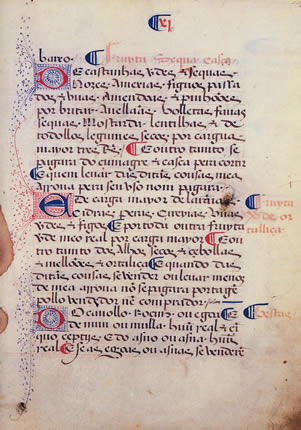 xj
bareo. Fruyta sequa casca
De castanhas vdes & sequas
Nozes, Amexias, figuos passa
dos & huuas, Amendoas & pinhoões
por britar, Auellaãs, bolletas, fauas
sequas, Mostarda, lentilhas, & de
todollos legumes secos, por cargua
mayor tres R.s Eoutro tanto se
pagara do çumagre & casca pera cortir
E quem leuar das ditas cousas mea
arroua pera seu vso nom pagara.
De carga mayor de laranias
Cidras, peras, Cireijas, huuas
vdes & figos E por toda outra fruyta
vde meo real por carga mayor E ou
tro tanto dos Alhos secos & cebollas
& mellooes & ortaliça E quando das
ditas cousas se vender ou leuar menos
de mea arroua nõ se pagara portage
pollo vendedor nẽ comprador.
Fruyta
vde or
taliça
Do caualo, Rocim, ou egoa E
de muu ou mulla huũ real & ci
quo ceptijs E do asno ou asna huũ
real E se as egoas ou asnas se venderẽ
bestas